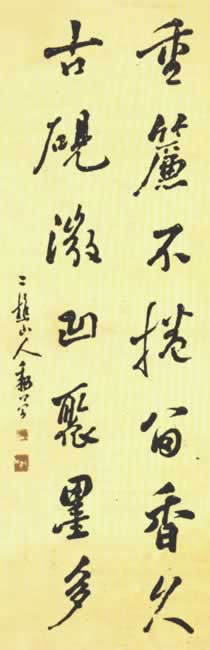 重簾不捲留香久
古硯微凹聚墨多
二樵山人黎簡